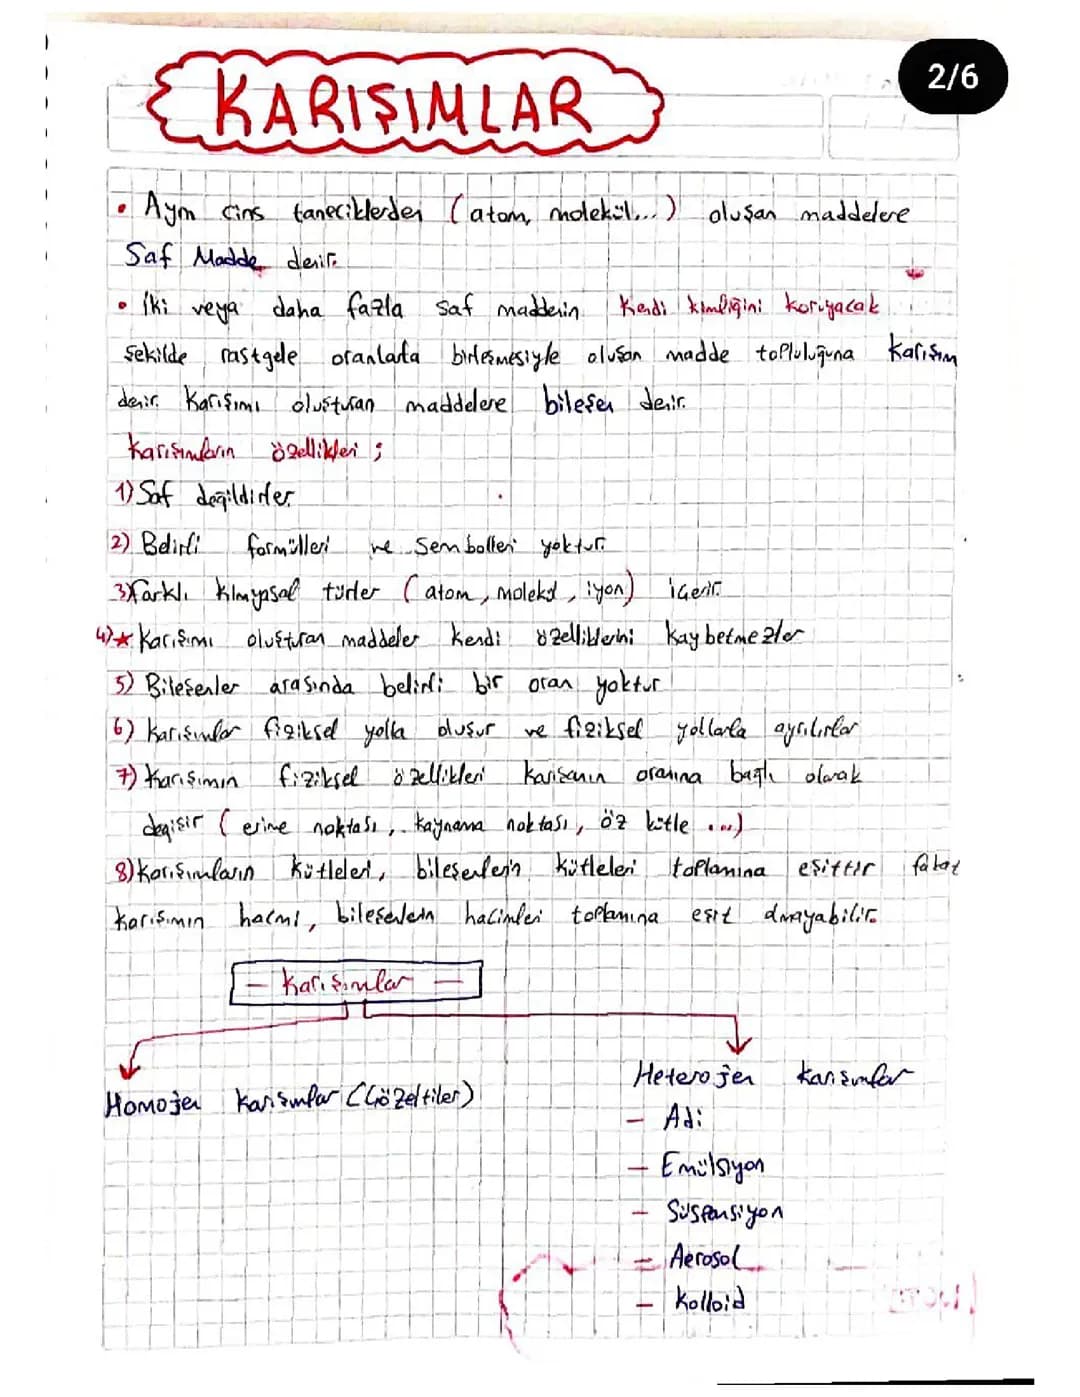 2/6
KARIŞIMLAR
• Aynı cins taneciklerden (atom, molekül...) oluşan maddelere
Saf Madde denir.
• İki veya daha fazla saf maddenin kendi kimliğini koruyacak
şekilde rastgele oranlarda birleşmesiyle oluşan madde topluluğuna karışım
denir. Karışımı oluşturan maddelere bileşen denir.
Karışımların özellikleri ;
1) Saf değildirler.
2) Belirli formülleri ve sembolleri yoktur.
3) Farklı kimyasal türler (atom, molekül, iyon) içerir.
4)★ Karışımı oluşturan maddeler kendi özelliklerini kaybetmezler
5) Bileşenler arasında belirli bir oran yoktur
6) Karışımlar fiziksel yolla oluşur ve fiziksel yollarla ayrılırlar
7) Karışımın fiziksel özellikleri karışanın oranına bağlı olarak
değişir (erime noktası, kaynama noktası, öz kütle ...)
8) Karışımların kütleleri, bileşenlerin kütleleri toplamına eşittir fakat
karışımın hacmi, bileşenlerin hacimleri toplamına eşit olmayabilir.
- Karışımlar -
Heterojen Karışımlar
Homojen Karışımlar (Çözeltiler)
- Adi
- Emülsiyon
- Süspansiyon
- Aerosol
- Kolloid